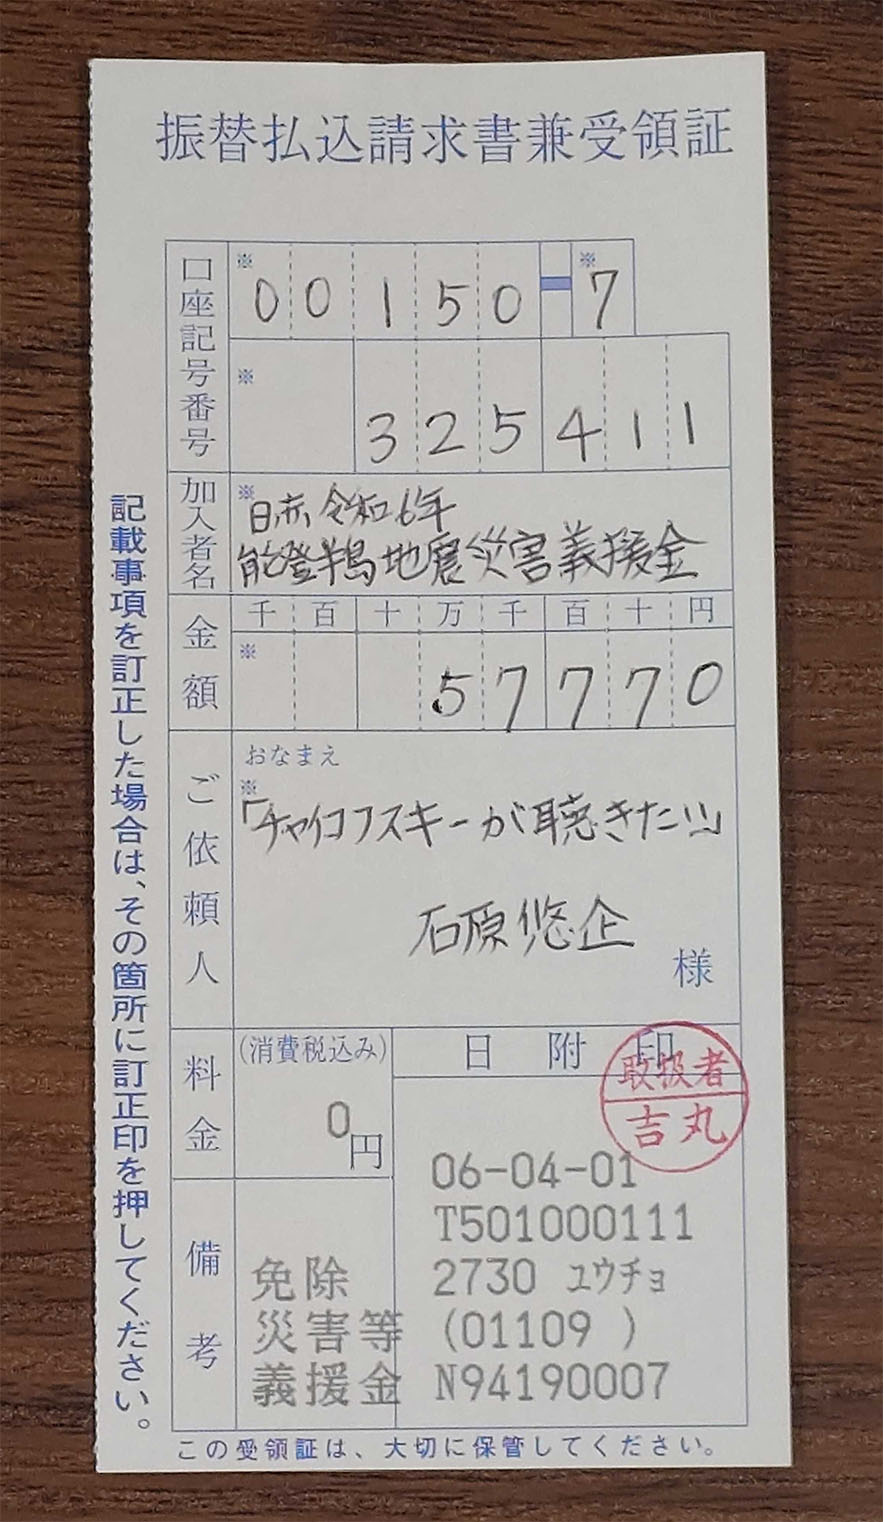 振替払込請求書兼受領証
口座記号番号
※ 00150-※7
※ 325411
加入者名
※日赤 令和6年
能登半島地震災害義援金
金額
千 百 十 万 千 百 十 円
※ 57770
ご依頼人
おなまえ
※
「チャイコフスキーが聴きたい」
石原悠企
様
料金
(消費税込み)
0円
日附印
取扱者
吉丸
06-04-01
T501000111
2730 ユウチョ
(01109 )
N94190007
備考
免除
災害等
義援金
記載事項を訂正した場合は、その箇所に訂正印を押してください。
この受領証は、大切に保管してください。